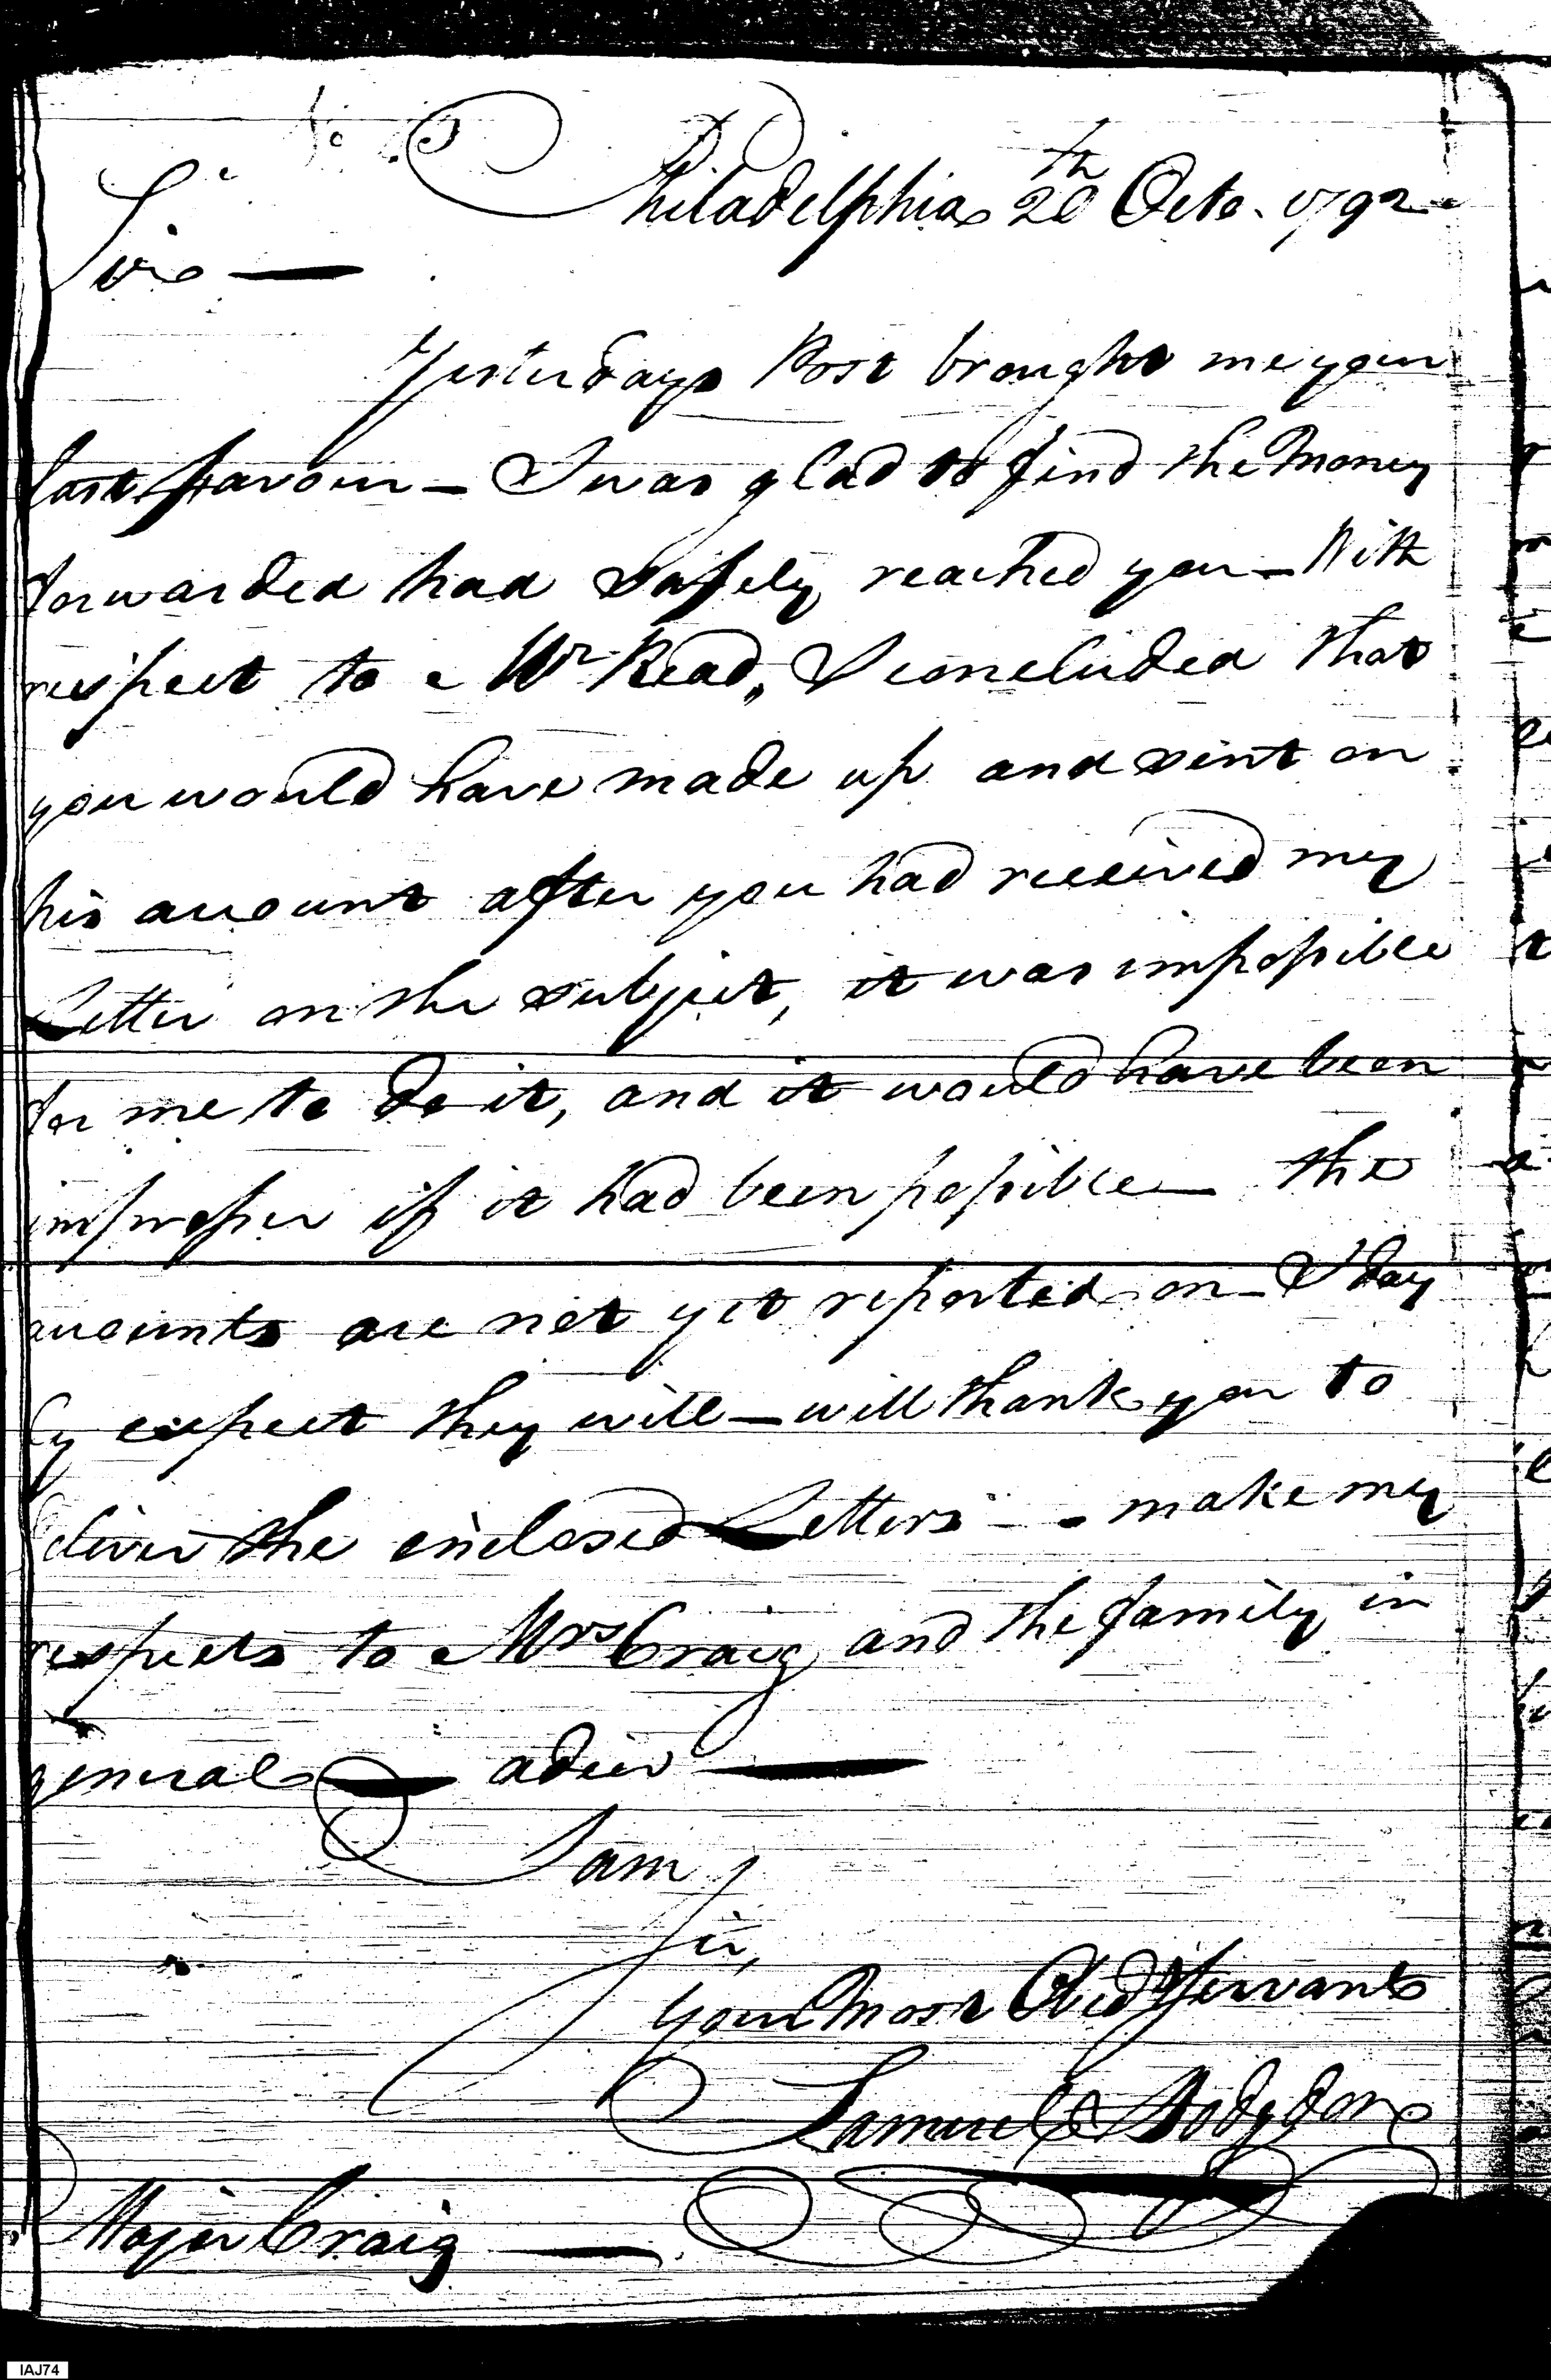 Philadelphia 20th Octo. 1792
Sir —
Yesterdays Post brought me your
last favour — I was glad to find the Money
forwarded had safely reached you — With
respect to Mr Read, I concluded that
you would have made up and sent on
his account after you had received my
Letter on the subject, it was impossible
for me to do it, and it would have been
improper if it had been possible — the
accounts are not yet reported on — I day
ly expect they will — will thank you to
deliver the enclosed Letters — make my
respects to Mrs Craig and the family in
general — adieu —
I am
Sir,
Your Most Obed Servant
Samuel Hodgdon
Major Craig —
IAJ74